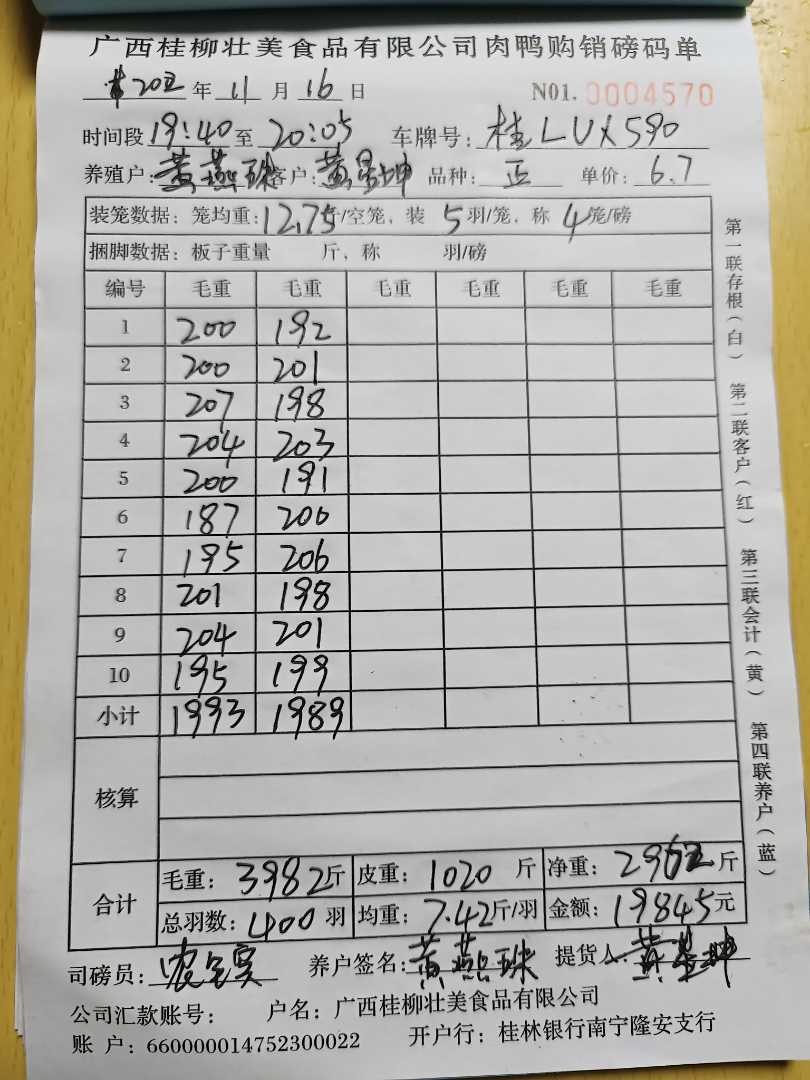 广西桂柳壮美食品有限公司肉鸭购销磅码单
202 年 11 月 16 日 N01. 0004570
时间段 19:40 至 20:05 车牌号: 桂LUX590
养殖户: 黄燕珠 客户: 黄 坤 品种: 正 单价: 6.7
装笼数据: 笼均重: 12.75 斤/空笼, 装 5 羽/笼, 称 4 笼/磅
捆脚数据: 板子重量 斤, 称 羽/磅
编号 毛重 毛重 毛重 毛重 毛重 毛重
1 200 192
2 200 201
3 207 198
4 204 203
5 200 191
6 187 200
7 195 206
8 201 198
9 204 201
10 195 199
小计 1993 1989
核算
合计 毛重: 3982 斤 皮重: 1020 斤 净重: 2962 斤
总羽数: 400 羽 均重: 7.42 斤/羽 金额: 19845 元
司磅员: 农 养户签名: 黄燕珠 提货人: 黄 坤
公司汇款账号: 户名: 广西桂柳壮美食品有限公司
账 户: 660000014752300022 开户行: 桂林银行南宁隆安支行
第一联存根(白) 第二联客户(红) 第三联会计(黄) 第四联养户(蓝)